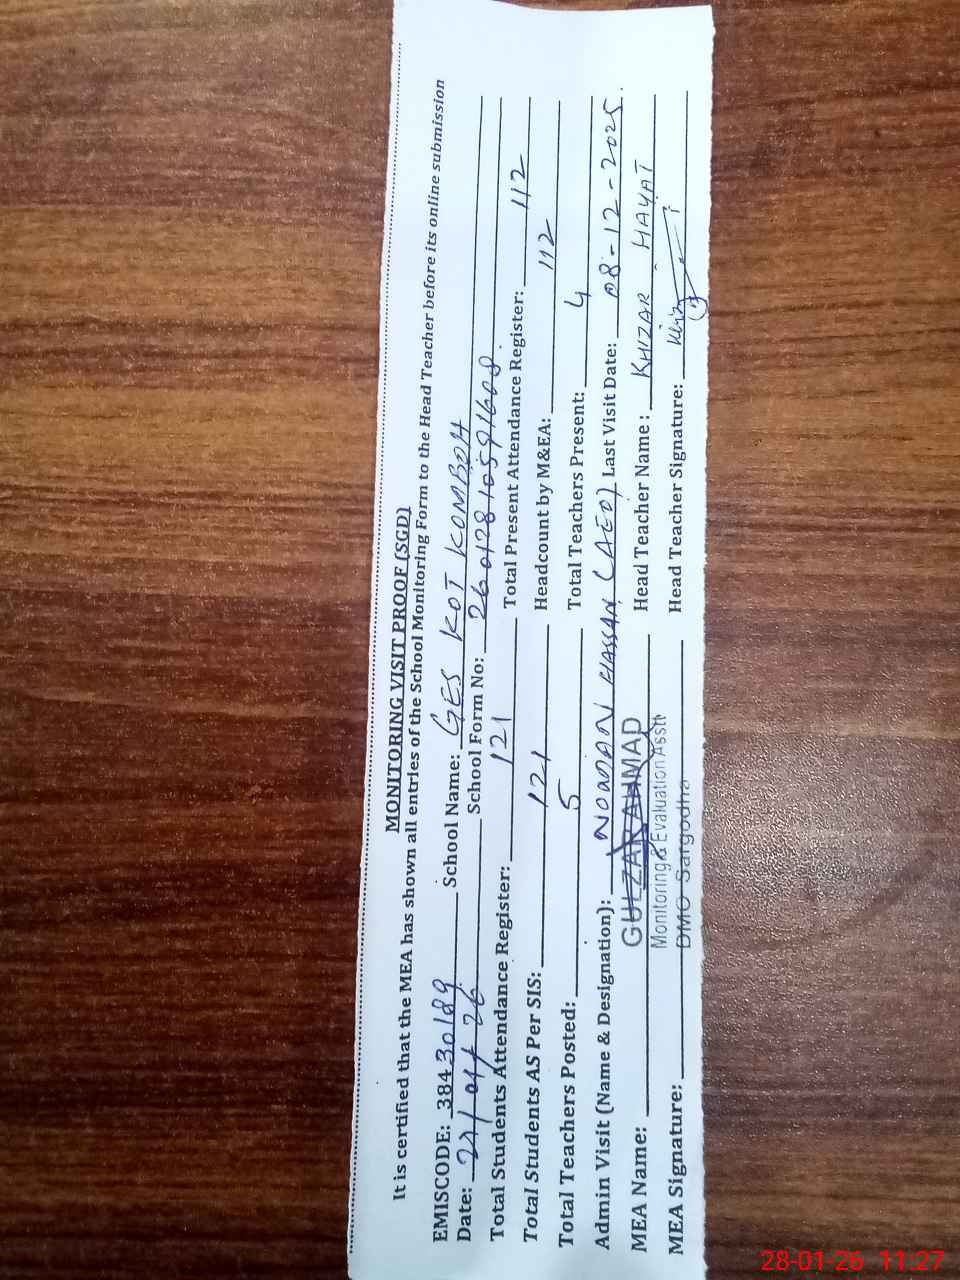 MONITORING VISIT PROOF (SGD)
It is certified that the MEA has shown all entries of the School Monitoring Form to the Head Teacher before its online submission
EMISCODE: 38430189 School Name: GES KOT KOMBOH
Date: /01/26 School Form No:
Total Students Attendance Register: 121 Total Present Attendance Register: 112
Total Students AS Per SIS: 121 Headcount by M&EA: 112
Total Teachers Posted: 5 Total Teachers Present: 4
Admin Visit (Name & Designation): NOMAN HASSAN (AEO) Last Visit Date: 08-12-2025.
MEA Name: GULZAR AHMAD Head Teacher Name: KHIZAR HAYAT
Monitoring & Evaluation Asstt
MEA Signature: DMO Sargodha Head Teacher Signature:
28-01-26 11:27